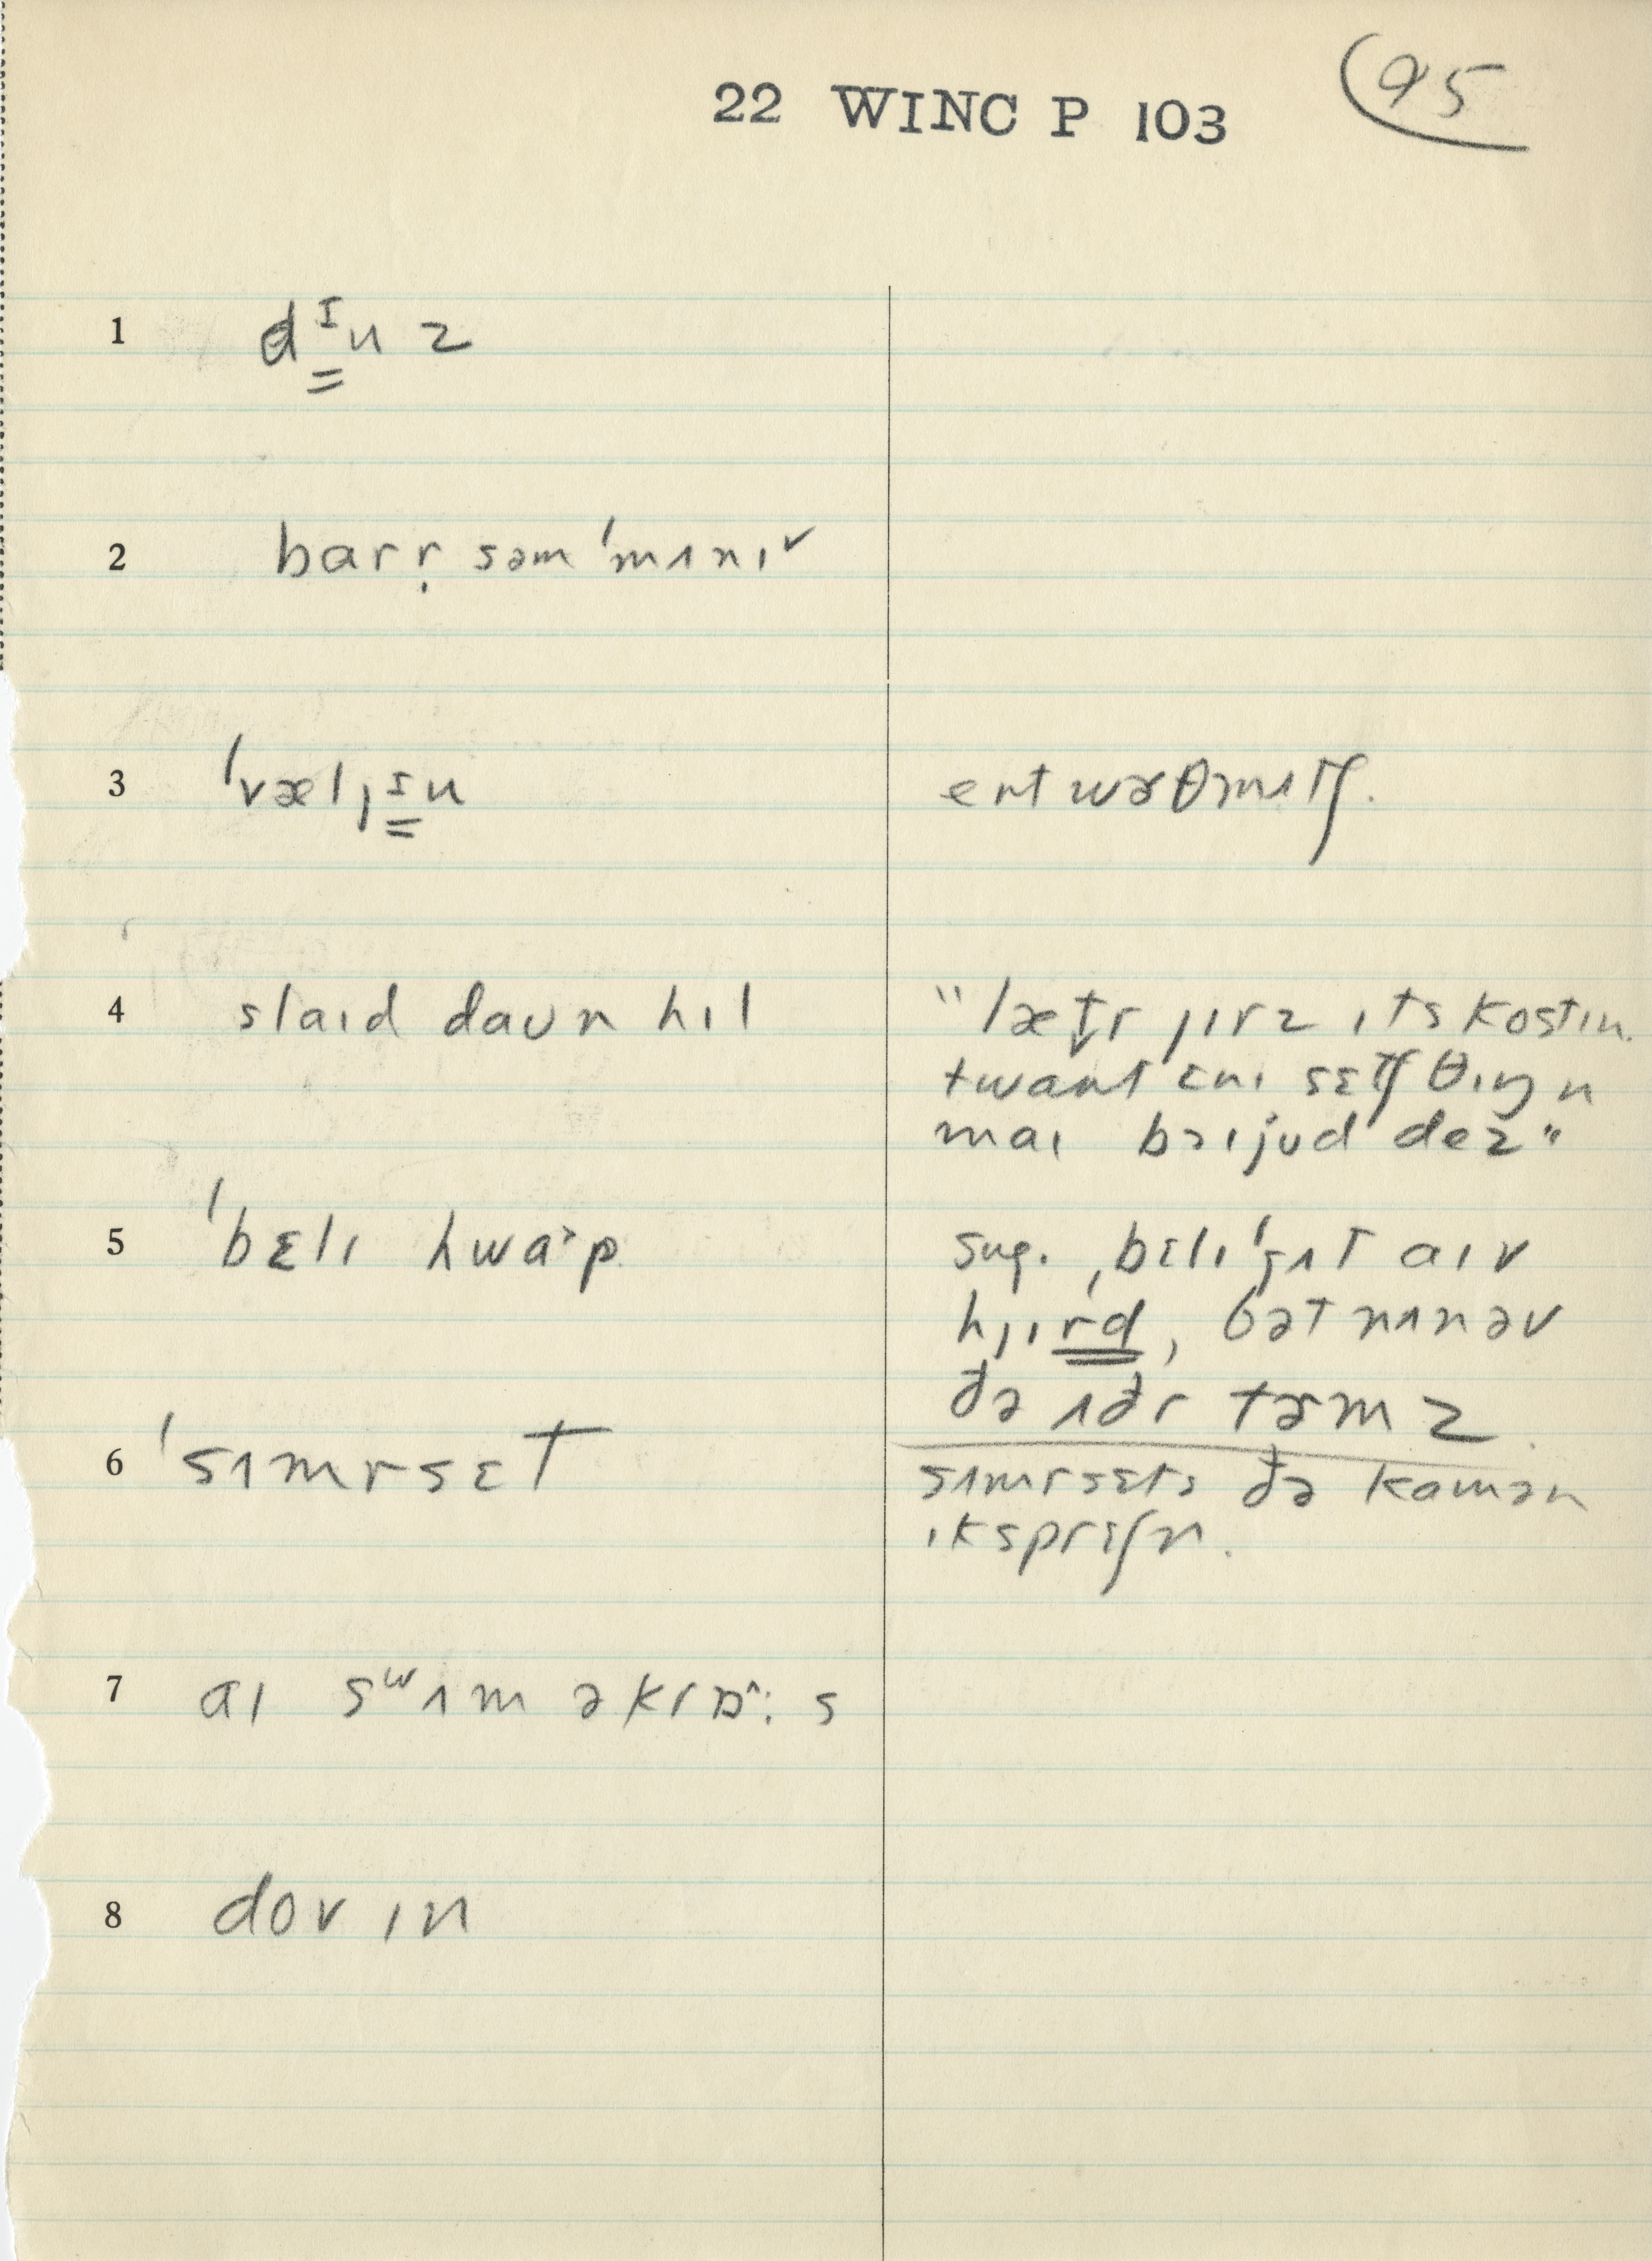 22 WINC P 103
95
1 dᶦuz
2 barr̩ səm ˈmʌnɪˇ
3 ˈvælˌᶦu
ent wɚθmʌtʃ.
4 slaɪd daʊn hɪl
"lætr jɪrz ɪts kostɪn
twant ɛnɪ sɛtʃ θɪŋ n
maɪ bɔɪjud dez"
5 ˈbɛlɪ hwaˑp
sug. ˌbɛlɪˈgʌt aɪv
hjɪrd, bət nʌn əv
ðə ʌðr tɚmz
6 ˈsʌmrsɛt
sʌmrsɛts ðə kamən
ɪksprɛʃn.
7 aɪ sʷʌm əkrɒˆ: s
8 dov ɪn